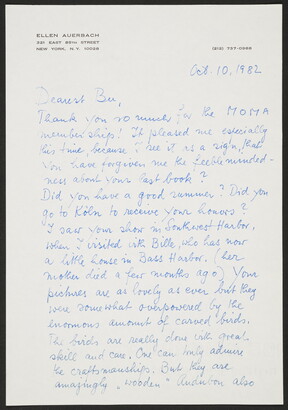 ELLEN AUERBACH
321 EAST 85th STREET
NEW YORK, N.Y. 10028
(212) 757-0266
Oct. 10, 1982
Dearest Bee,
Thank you so much for the MOMA
membership! It pleased me especially
this time, because I see it as a sign, that
you have forgiven me the feebleminded-
ness about your last book?
Did you have a good summer? Did you
go to Köln to receive your honors?
I saw your show in Southwest Harbor,
when I visited with Bille, who has now
a little house in Bass Harbor. (her
mother died a few months ago) Your
pictures are as lovely as ever but they
were somewhat overpowered by the
enormous amount of carved birds.
The birds are really done with great
skill and care. One can only admire
the craftsmanship. But they are
amazingly „wooden" Audubon also